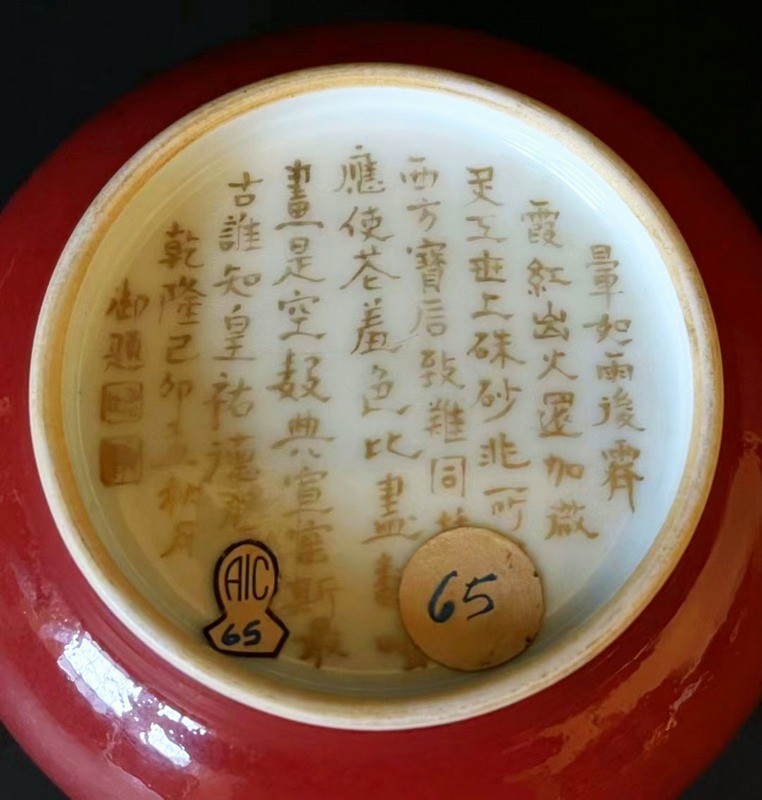 暈如雨後霽
霞紅出火還加微
炙工世上硃砂非所
西方寶石致難同
應使花羞色比畫
畫是空數典宣窯斯最
古誰知皇祐德
乾隆己卯孟秋月
御題
AIC
65
65